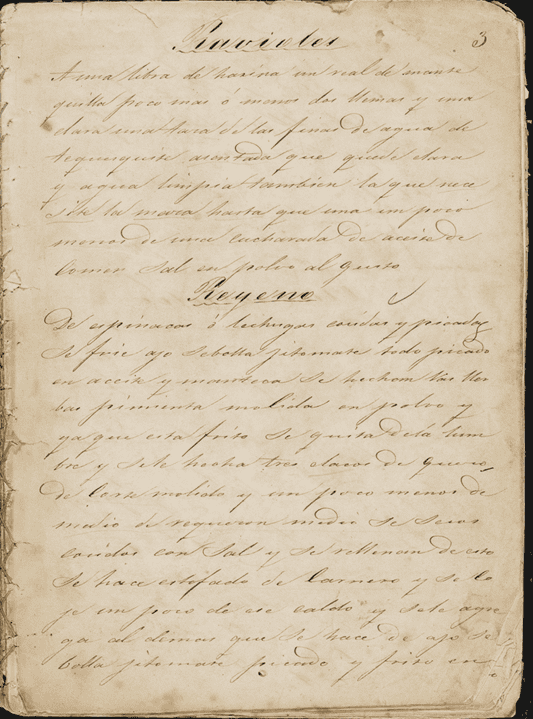 Ravioles
3
A una libra de harina un real de mante
quilla poco mas ó menos dos llemas y una
clara una tasa de las finas de agua de
tequesquite asentada que quede clara
y agua limpia tambien la que nece
site la masa hasta que una un poco
menos de una cucharada de aceite de
comer sal en polvo al gusto
Reyeno
De espinacas ó lechugas cosidas y picadas
se frie ajo sebolla jitomate todo picado
en aceite y manteca se hechan las ller
bas pimienta molida en polvo y
ya que esta frito se quita de la lum
bre y se le hecha tres clacos de queso
de Corte molido y un poco menos de
medio de requeson medio de sesos
cosidos con sal y se rellenan de esto
Se hace estofado de Carnero y se co
je un poco de ese caldo y se le agre
ga al demas que se hace de ajo se
bolla jitomate picado y frito en